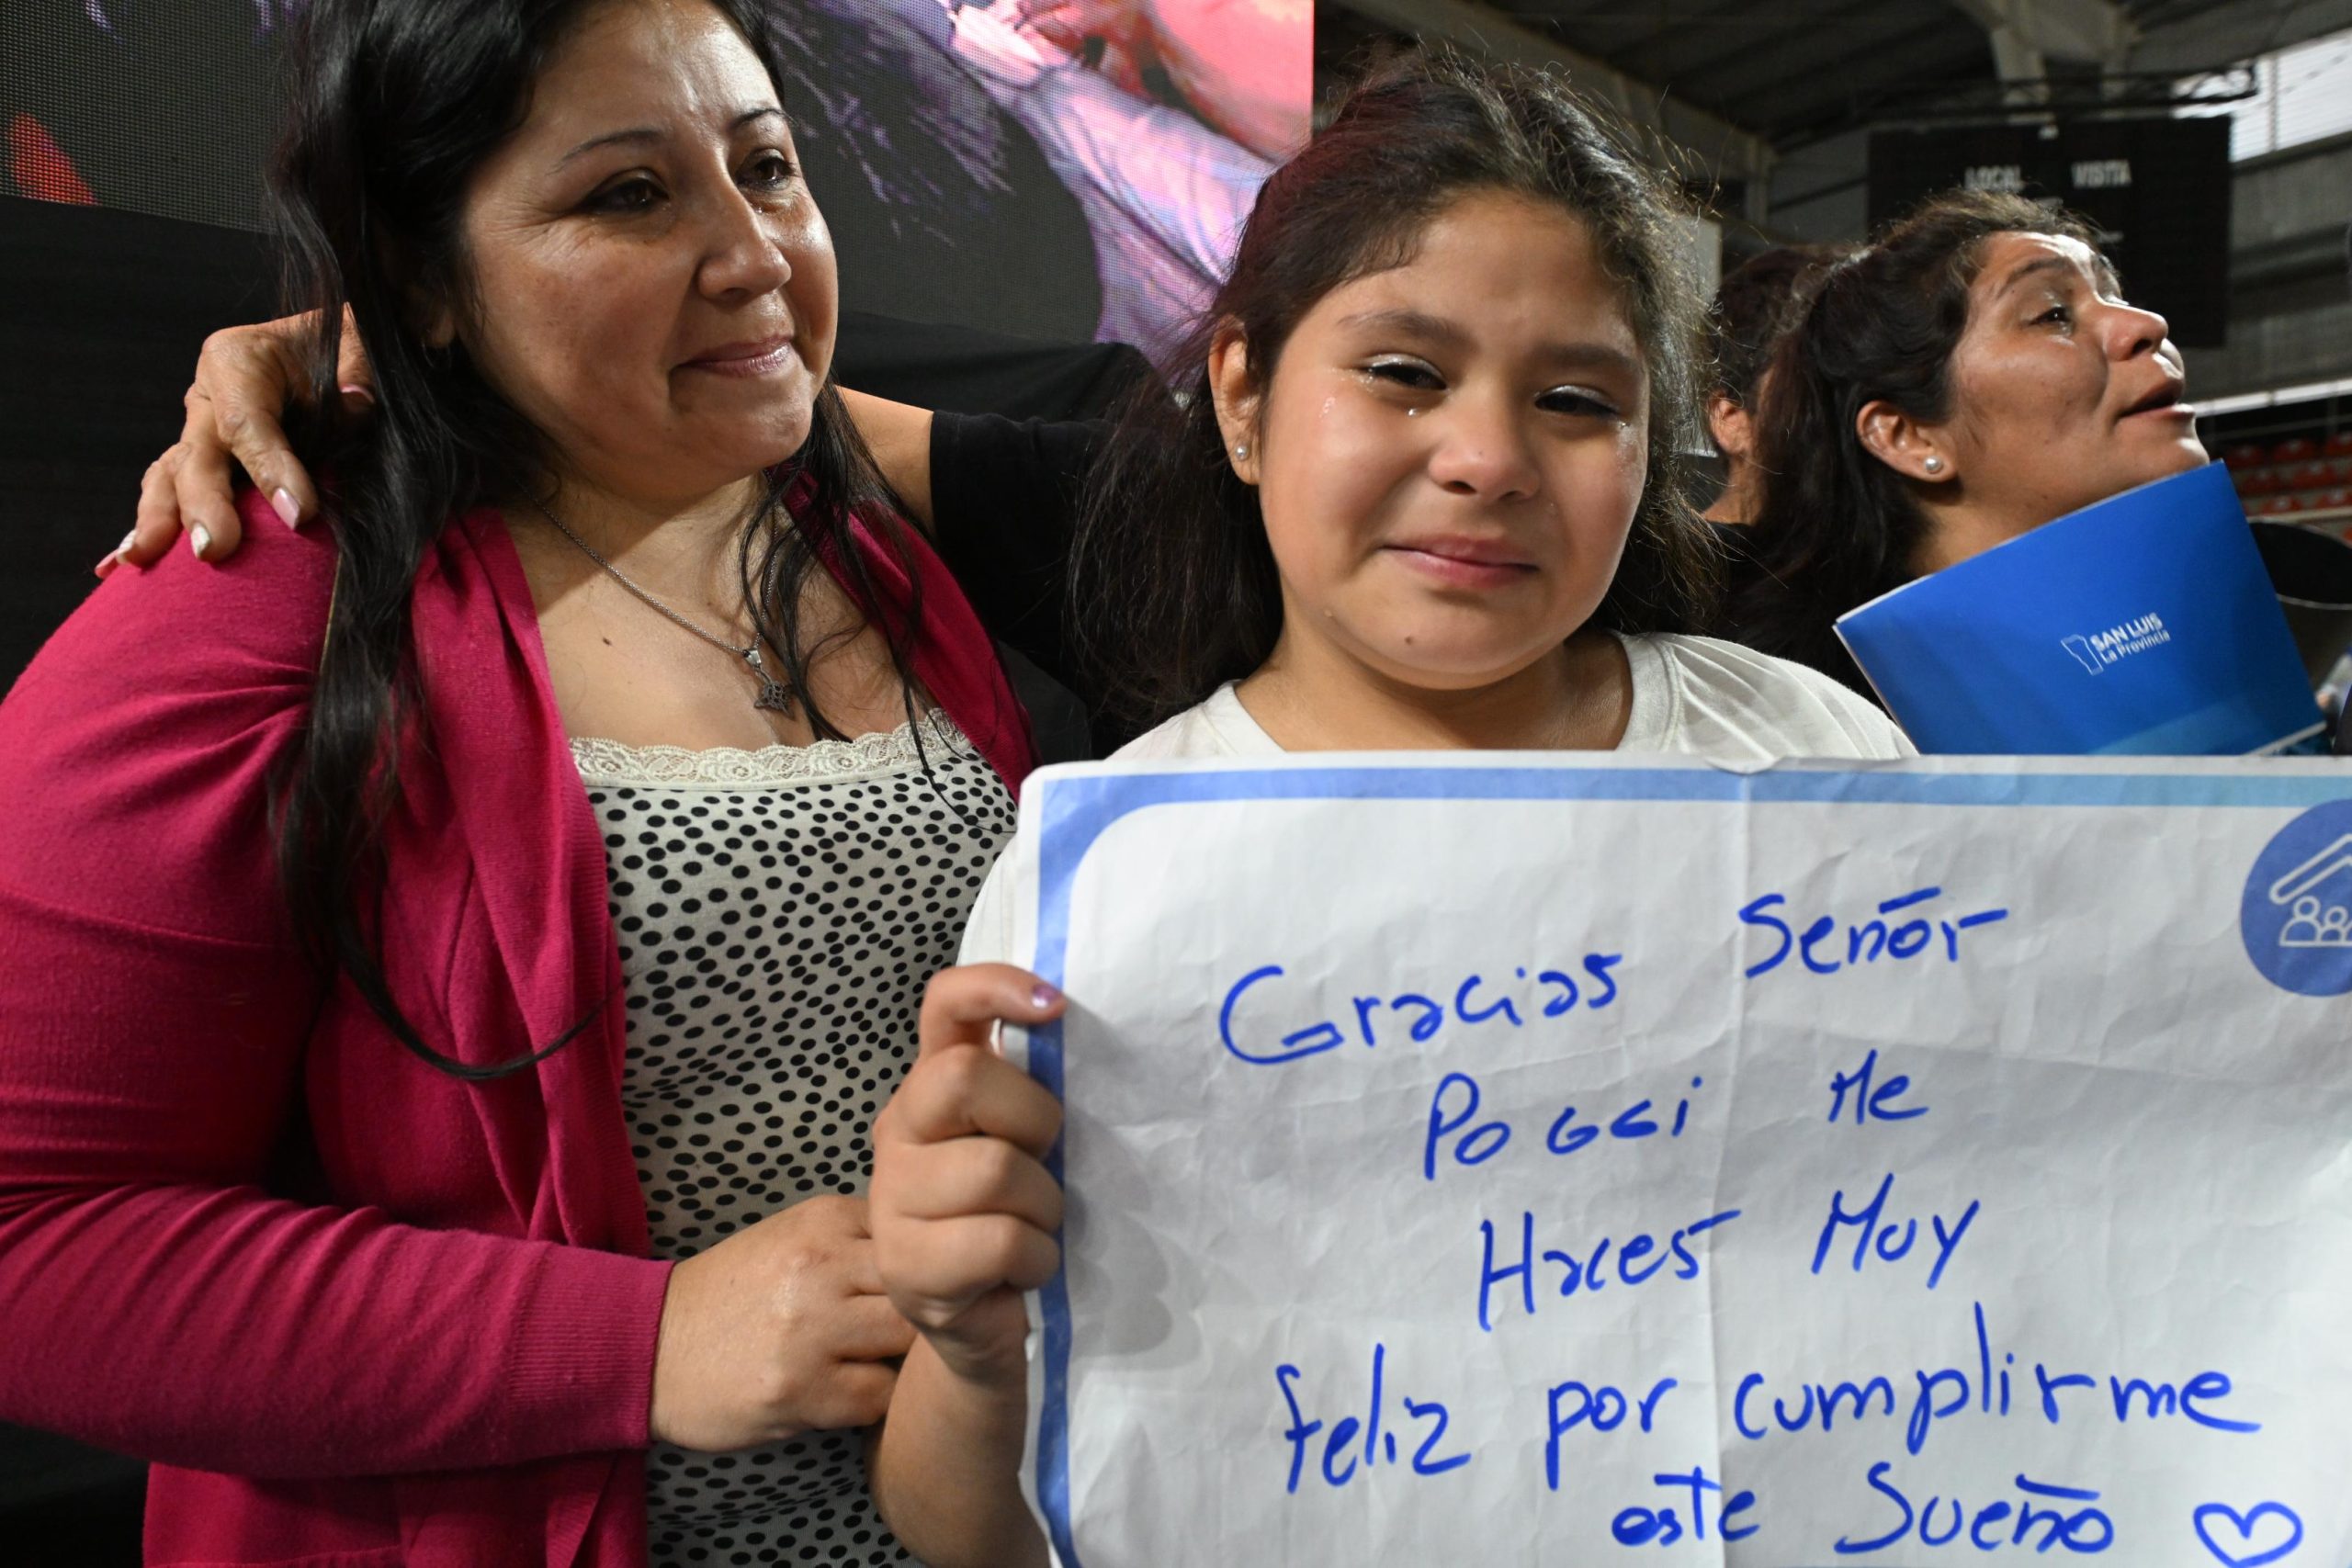 LOCAL VISITA
SAN LUIS
La Provincia
Gracias Señor
POGGi Me
Haces Muy
feliz por cumplirme
este Sueño